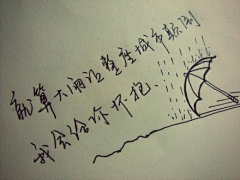 就算大雨让整座城市颠倒
我会给你怀抱